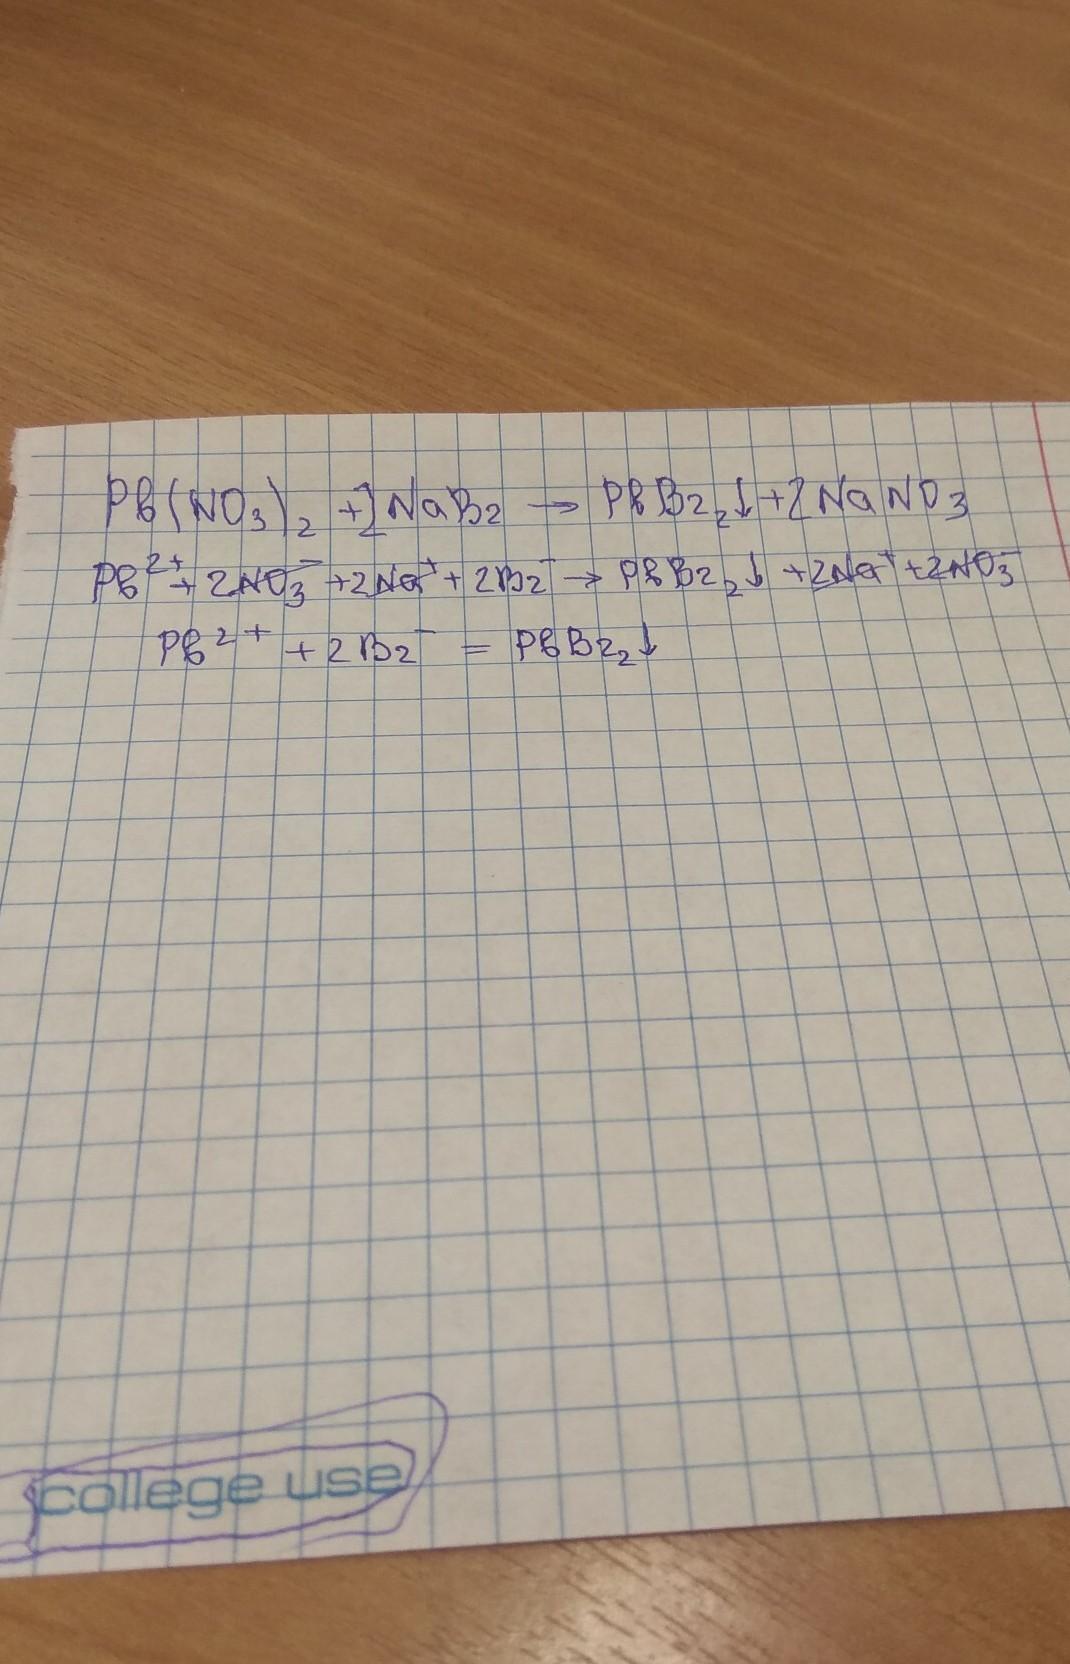 Pb(NO3)2 + 2NaBr → PbBr2↓ + 2NaNO3
Pb²⁺ + 2NO3⁻ + 2Na⁺ + 2Br⁻ → PbBr2↓ + 2Na⁺ + 2NO3⁻
Pb²⁺ + 2Br⁻ = PbBr2↓
college use